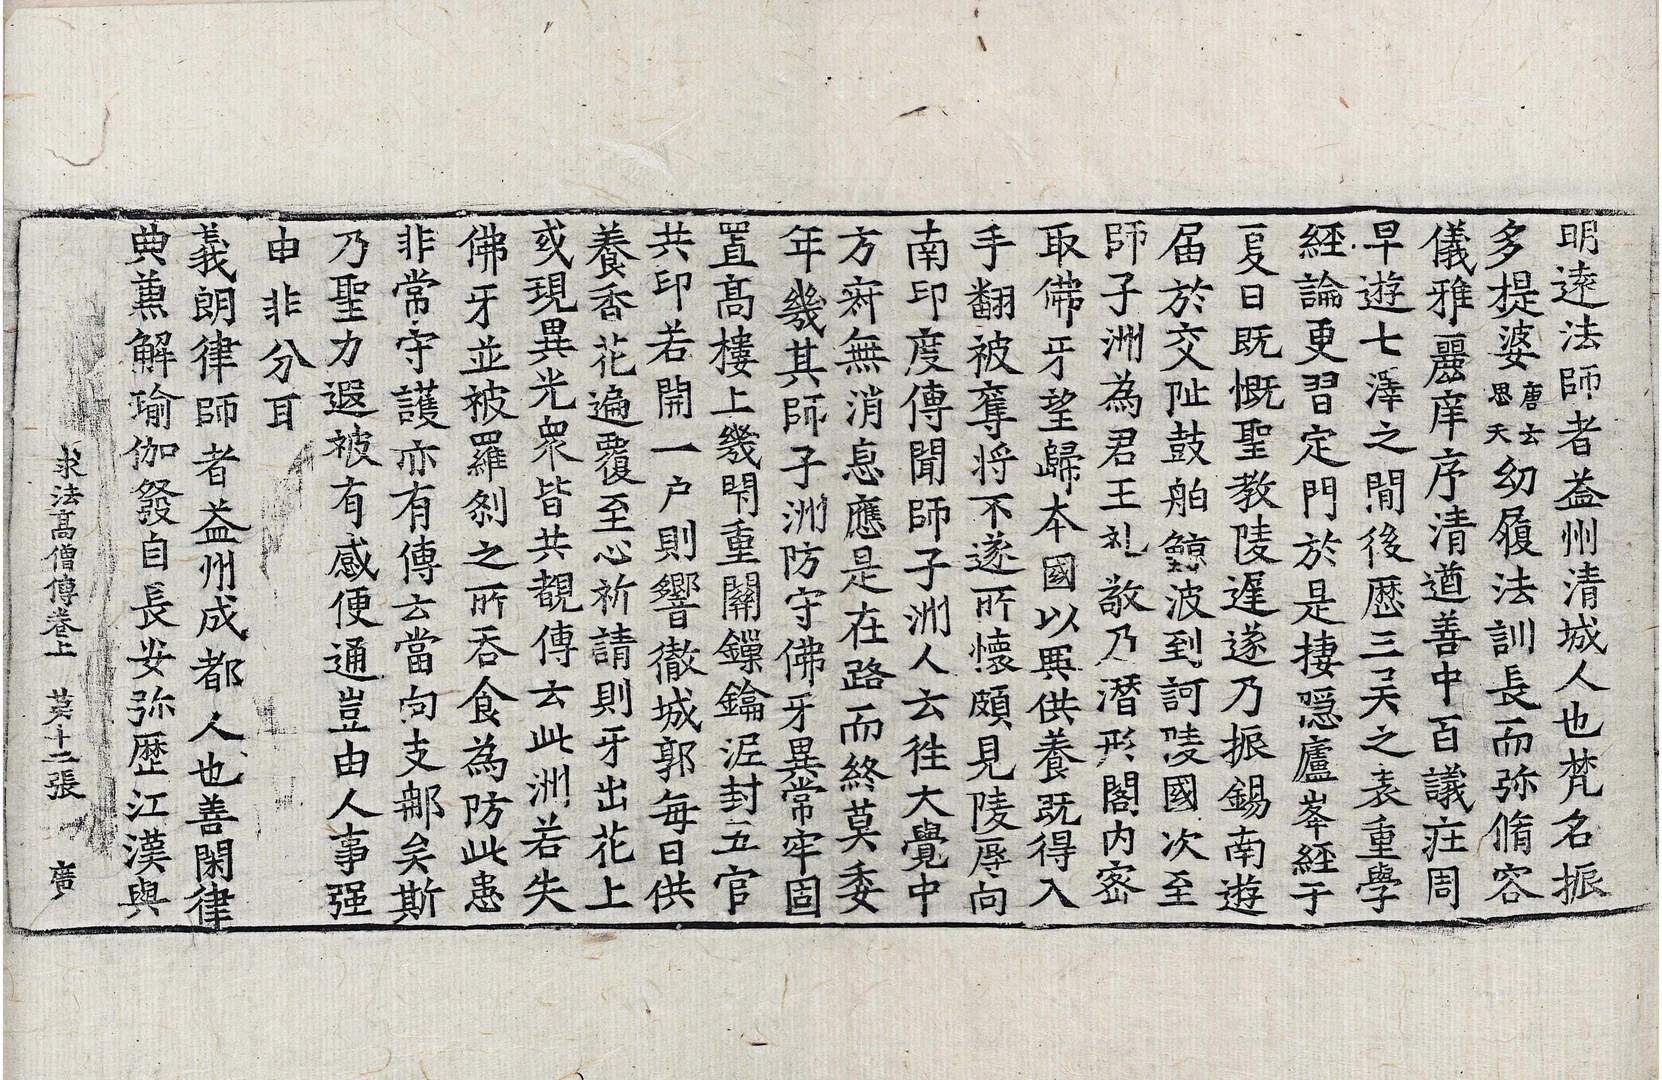 明遠法師者益州清城人也梵名振
多提婆唐云思天幼履法訓長而弥脩容
儀雅麗庠序清遒善中百議荘周
早遊七澤之閒後歷三吴之表重學
經論更習定門於是捿隱廬峯經于
夏日既慨聖教陵遲遂乃振錫南遊
届於交阯鼓舶鯨波到訶陵國次至
師子洲為君王礼敬乃潛形閣內密
取佛牙望歸本國以興供養既得入
手翻被奪將不遂所懷頗見陵辱向
南印度傳聞師子洲人云往大覺中
方寂無消息應是在路而終莫委
年幾其師子洲防守佛牙異常牢固
置高樓上幾閇重關鏁鑰泥封五官
共印若開一户則響徹城郭每日供
養香花遍覆至心祈請則牙出花上
或現異光衆皆共覩傳云此洲若失
佛牙並被羅剎之所吞食為防此患
非常守護亦有傳云當向支郍矣斯
乃聖力遐被有感便通豈由人事强
申非分耳
義朗律師者益州成都人也善閑律
典兼解瑜伽發自長安弥歷江漢與
求法高僧傳卷上 苐十二張 廣